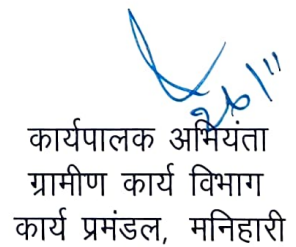 26/11
कार्यपालक अभियंता
ग्रामीण कार्य विभाग
कार्य प्रमंडल, मनिहारी